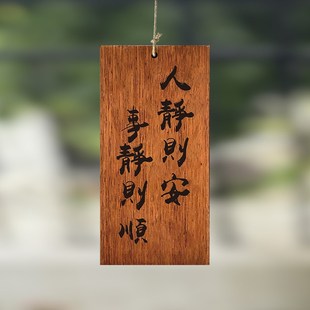 人靜則安
事靜則順